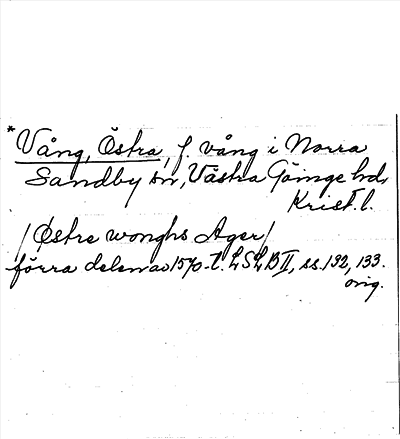 *Vång, Östra, f. vång i Norra
Sandby sn, Västra Göinge hd,
Krist. l.
/Østre wonghs Ager/
förra delen av 1570-t. LSLB II, ss. 132, 133.
orig.